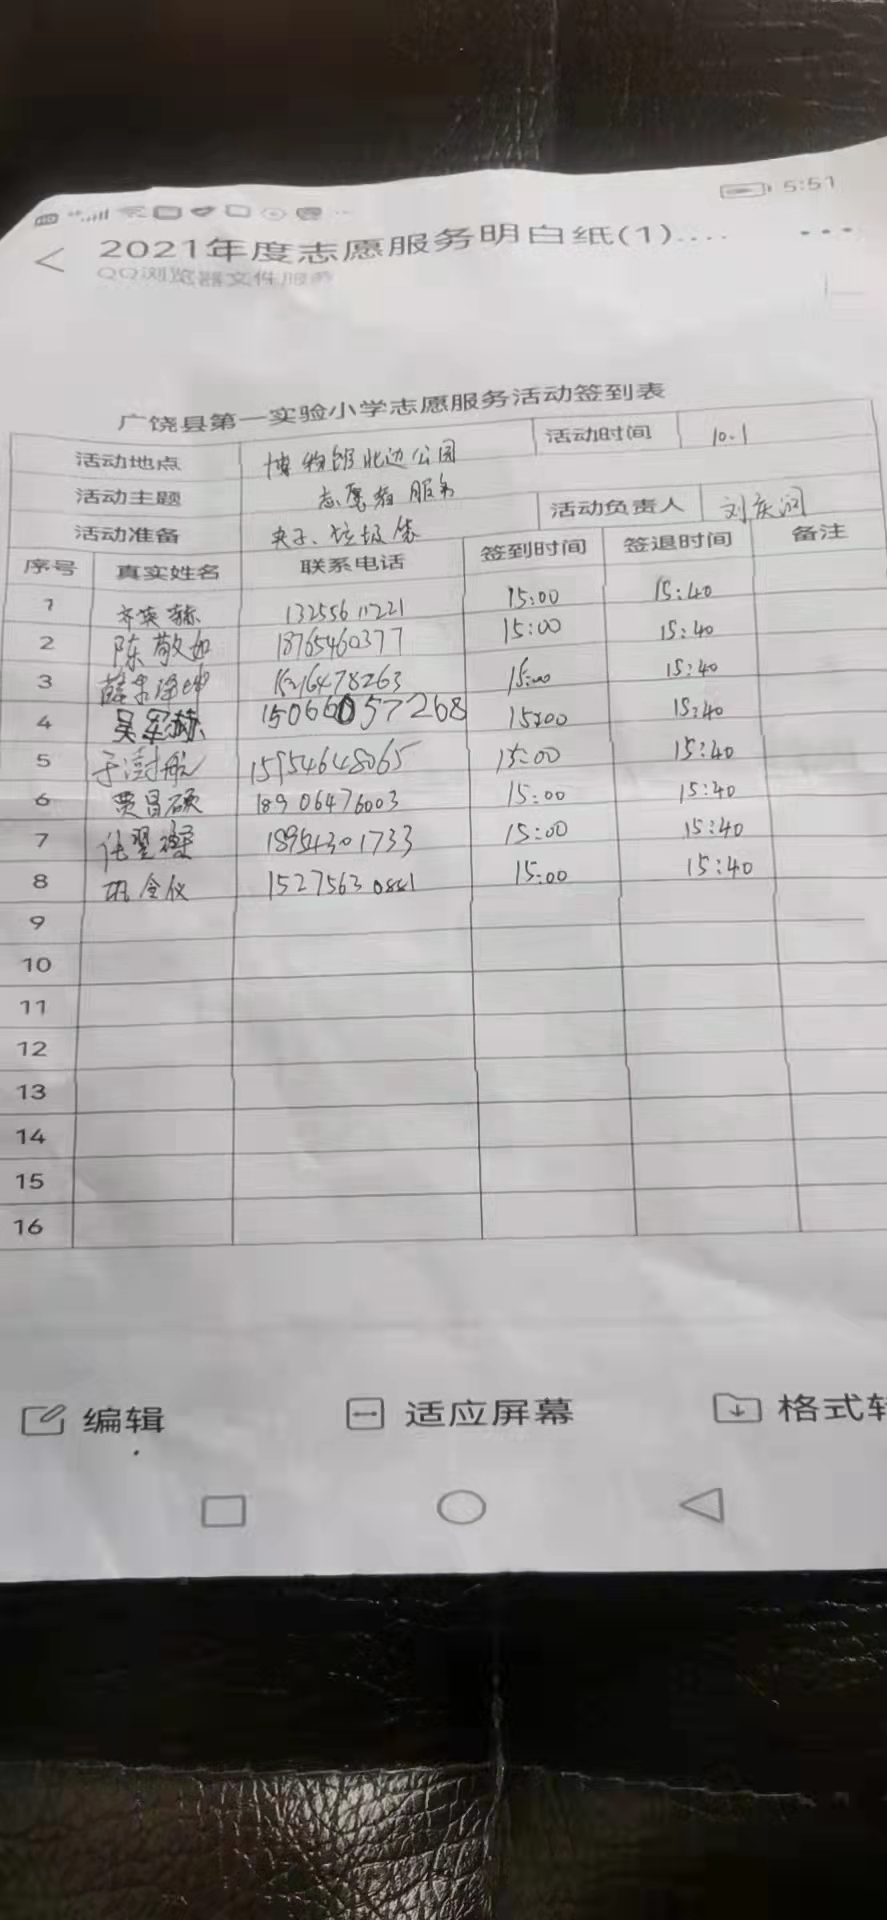 5:51
2021年度志愿服务明白纸(1)....
QQ浏览器文件服务
广饶县第一实验小学志愿服务活动签到表
活动地点 博物馆北边公园 活动时间 10.1
活动主题 志愿者服务
活动准备 夹子、垃圾袋 活动负责人 刘庆润
序号 真实姓名 联系电话 签到时间 签退时间 备注
1 13255611221 15:00 15:40
2 陈敬如 18765460377 15:00 15:40
3 15:00 15:40
4 15066057268 15:00 15:40
5 于澍航 15954648065 15:00 15:40
6 贾昌硕 18906476003 15:00 15:40
7 18954301733 15:00 15:40
8 15:00 15:40
9
10
11
12
13
14
15
16
编辑 适应屏幕 格式转